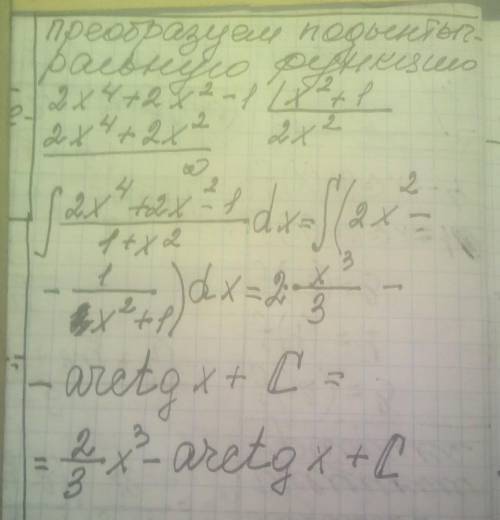 преобразуем подынтег-
ральную функцию
2x⁴+2x²-1 | x²+1
2x⁴+2x² 2x²
∫ (2x⁴+2x²-1)/(1+x²) dx = ∫(2x² -
- 1/(x²+1)) dx = 2·x³/3 -
- arctg x + C =
= 2/3 x³ - arctg x + C